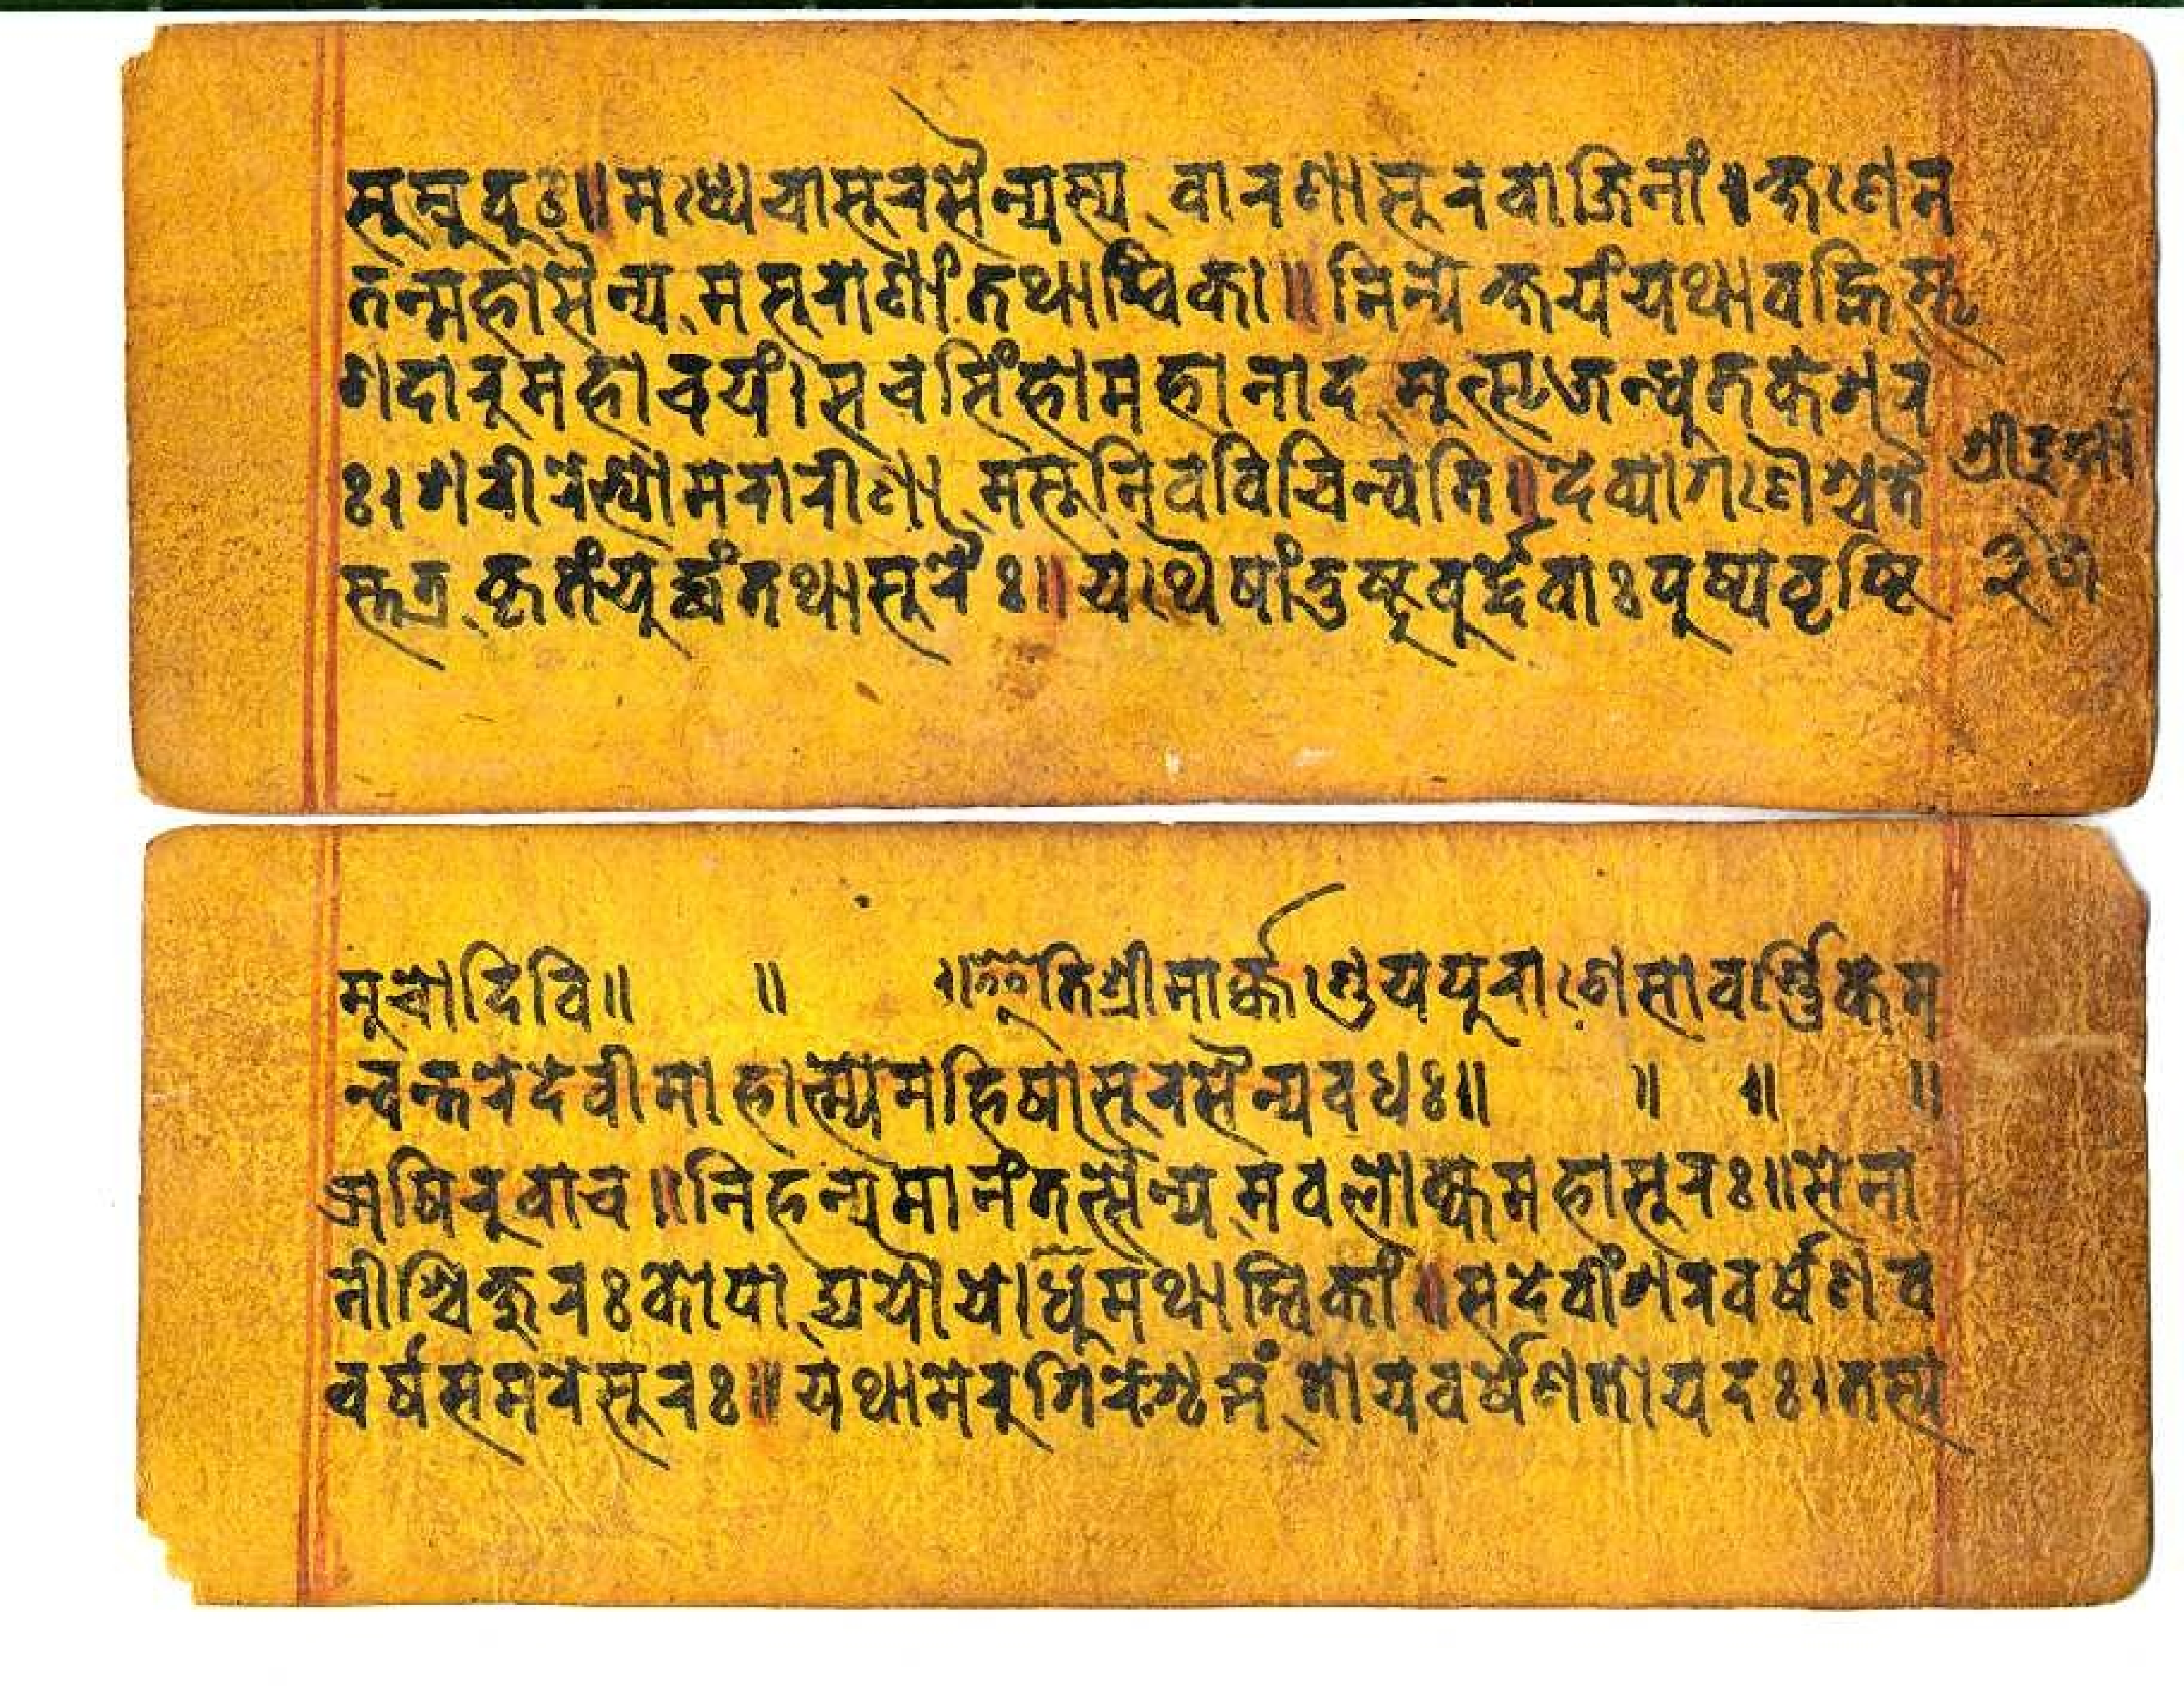 सुस्रुवुः॥मध्येचासुरसैन्यस्य वारणासुरवाजिनां॥क्षणेन
तन्महासैन्य मसुराणांतथाम्बिका॥निन्येक्षयंयथावह्निस्तृ
णदारुमहाचयं।सचसिंहोमहानाद मुत्सृजन्धुतकेशर
ः।शरीरेभ्योमरारीणा मसूनिवविचिन्वति॥देव्यागणैश्चतै
स्तत्र कृतंयुद्धंतथासुरैः॥यथैषांतुष्टुवुर्द्देवाःपुष्पवृष्टि
श्रीदुर्गा
२७
मुचोदिवि॥ ॥ ॥इतिश्रीमार्क्कण्डेयपुराणेसावर्ण्णिकेम
न्वन्तरेदेवीमाहात्म्येमहिषासुरसैन्यवधः॥ ॥ ॥ ॥
ऋषिरुवाच॥निहन्यमानंतत्सैन्य मवलोक्यमहासुरः॥सेना
नीश्चिक्षुरःकोपा द्ययौयोद्धुमथाम्बिकां॥सदेवींशरवर्षेणव
वर्षसमरेसुरः॥यथामेरुगिरेःशृङ्गं तोयवर्षेणतोयदः।तस्य